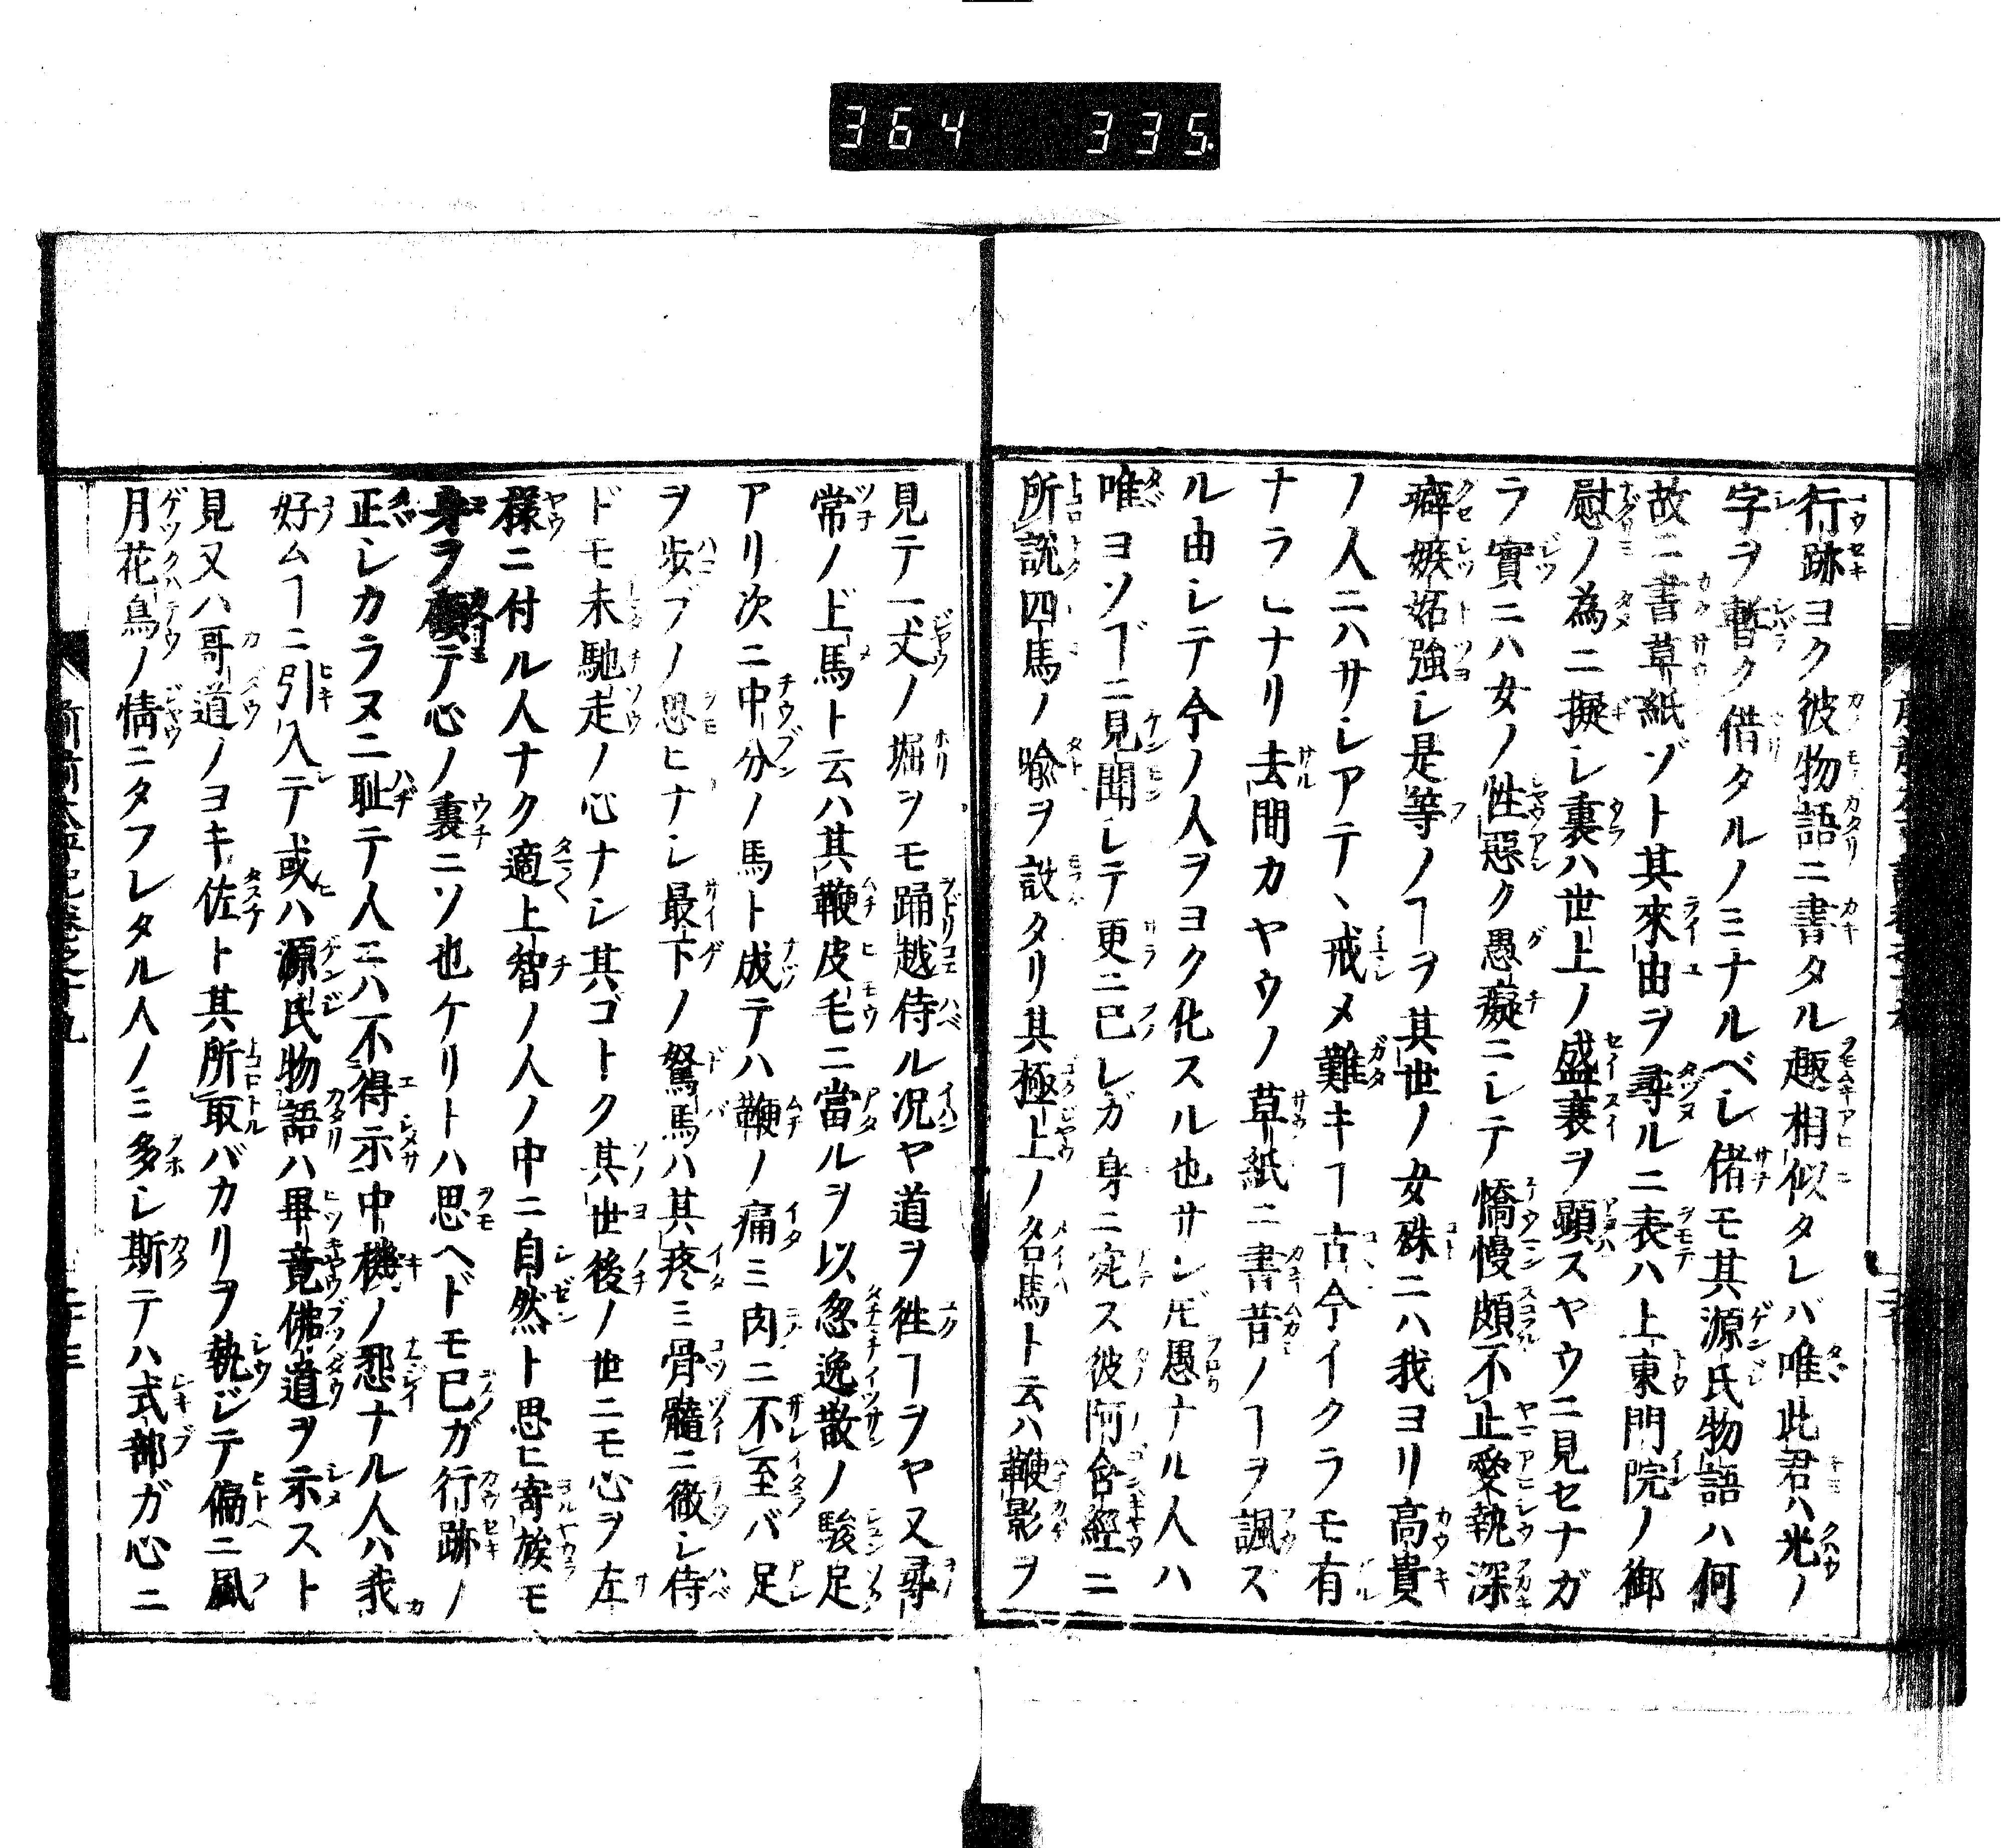 364 335
行跡ヨク彼物語ニ書タル趣相似タレバ唯此君ハ光ノ
字ヲ暫ク借タルノミナルベシ偖モ其源氏物語ハ何
故ニ書草紙ゾト其來由ヲ尋ルニ表ハ上東門院ノ御
慰ノ為ニ擬シ裏ハ世上ノ盛衰ヲ顕スヤウニ見セナガ
ラ實ニハ女ノ性惡ク愚癡ニシテ憍慢頗不止愛執深
癖嫉妬強シ是等ノヿヲ其世ノ女殊ニハ我ヨリ高貴
ノ人ニハサシアテヽ戒メ難キヿ古今イクラモ有
ナラヒナリ去間カヤウノ草紙ニ書昔ノヿヲ諷ズ
ル由シテ今ノ人ヲヨク化スル也サレ𪜈愚ナル人ハ
唯ヨソヿニ見聞シテ更ニ已レガ身ニ宛ス彼阿含經ニ
所說四馬ノ喩ヲ設タリ其極上ノ名馬ト云ハ鞭影ヲ
見テ一丈ノ堀ヲモ踊越侍ル况ヤ道ヲ徃ヿヲヤ又尋
常ノ上馬ト云ハ其鞭皮毛ニ當ルヲ以忽逸散ノ駿足
アリ次ニ中分ノ馬ト成テハ鞭ノ痛ミ肉ニ不至バ足
ヲ歩ブノ思ヒナシ最下ノ駑馬ハ其疼ミ骨髓ニ徹シ侍
ドモ未馳走ノ心ナシ其ゴトク其世後ノ世ニモ心ヲ左
樣ニ付ル人ナク適上智ノ人ノ中ニ自然ト思ヒ寄族モ
身ヲ顧テ心ノ裏ニソ也ケリトハ思ヘドモ已ガ行跡ノ
正シカラヌニ耻テ人ニハ不得示中機ノ忍ナル人ハ我
好ムヿニ引入テ或ハ源氏物語ハ畢竟佛道ヲ示スト
見又ハ哥道ノヨキ佐ト其所取バカリヲ執ジテ偏ニ風
月花鳥ノ情ニタフレタル人ノミ多シ斯テハ式部ガ心ニ
前前太平記卷之十九